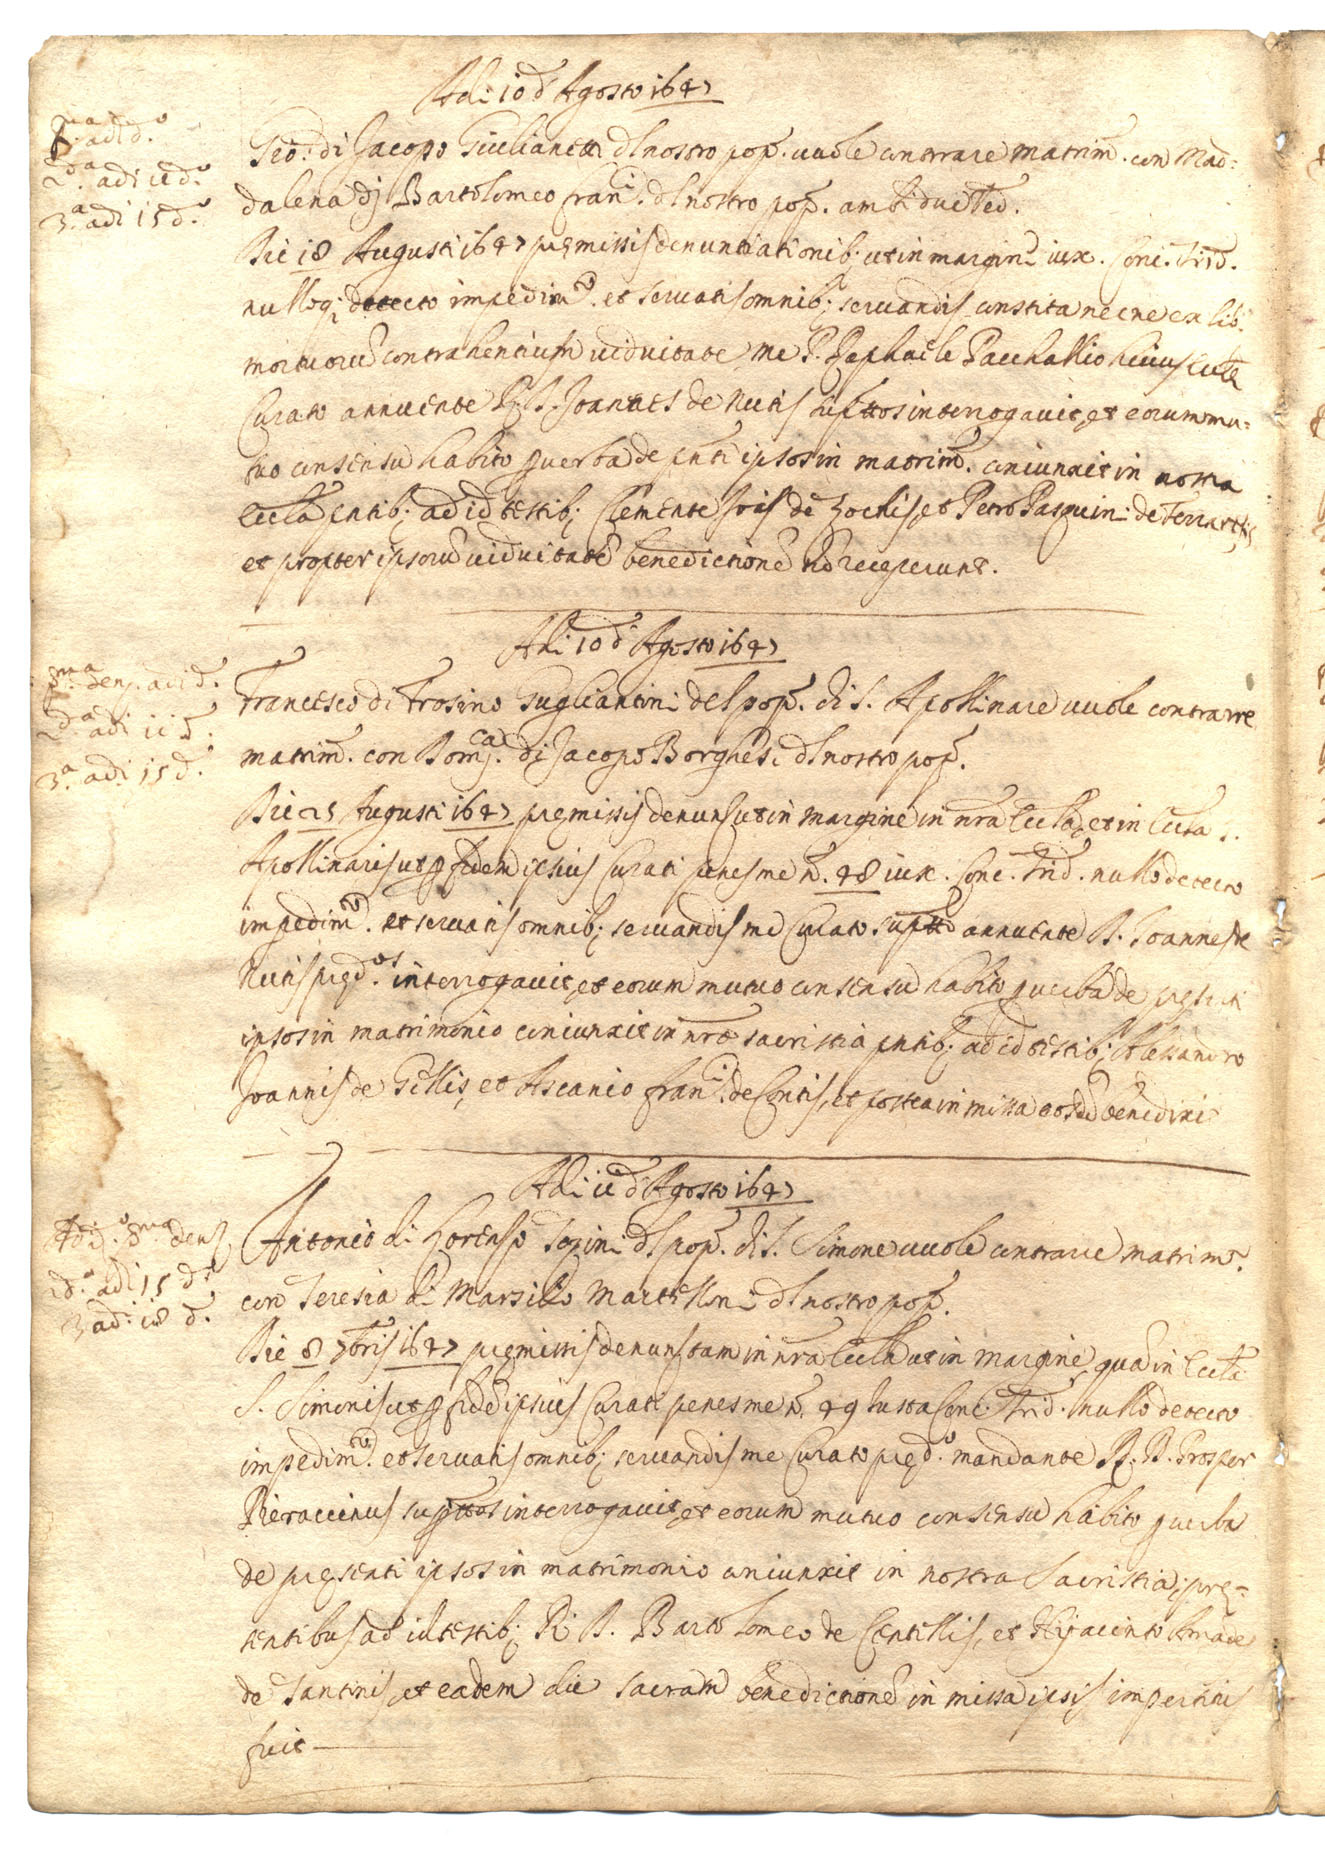 Adi 10 d. Agosto 1647
p.ma adi d.o
2.da adi 11 d.o
3.a adi 15 d.o
Gio: di Jacopo Giulianetti dl nostro pop. vuole contrarre matrim. con Mad=
dalena dj Bartolomeo fran.i dl nostro pop. ambidue Ved.
Die 18 Augusti 1647 premissis denuntiationib; ut in margin. iux. Conc. Trid.
nulloq; detecto impedim.to et servatis omnib; servandis constita necne ex lib.
mortuoru contrahentium viduitate me P. Raphaele Paschallio huius Eccle
Curato annuente R. J. Joannes de Nutis suptos interrogavit, et eorum mu=
tuo consensu habito p verba de pnti ipsos in matrim. coniunxit in nostra
Eccla pntib; ad id testib; Clemente Jois de Zochis, et Petro Pasquini de Ferrar
et propter ipsoru viduitate benedictione no receperunt.
Adi 10 d. Agosto 1647
p.ma denz. adi d.
2.da adi 11 d.
3.a adi 15 d.
Francesco di Frosino Gugliantini del pop. di S. Apollinare vuole contrarre
matrim. con Dom.ca di Jacopo Borghesi dl nostro pop.
Die 25 Augusti 1647 premissis denun ut in margine in nra Eccla, et in Eccla S.
Apollinaris ut p fidem ipsius Curati penes me n. 48 iux. Conc. Trid. nullo detecto
impedim.to et servatis omnib; servandis me Curato supto annuente R. Joannes de
Nutis pred.os interrogavit, et eorum mutuo consensu habito p verba de presenti
ipsos in matrimonio coniunxit in nra sacristia pntib; ad id testib; Alessandro
Joannis de Gillis, et Ascanio fran.i de Contis, et postea in missa eosd benedixi
Adi 11 d. Agosto 1647
Adi d.o p.ma denz
2.da adi 15 d.o
3 adi 18 d.
Antonio di Lorenso Sozini dl pop. di S. Simone vuole contrarre matrim.
con Teresia di Marsilio Martelloni dl nostro pop.
Die 8 7bris 1647 premissis denun tam in nra Eccla ut in margine, qua in Eccla
S. Simonis ut p fide ipsius Curati penes me n. 49 Iusta Conc. Trid. nullo detecto
impedim.to et servatis omnib; servandis me Curato pred.o mandante R. D. Prosper
Pieraccinus suptos interrogavit, et eorum mutuo consensu habito p verba
de presenti ipsos in matrimonio coniunxit in nostra Sacristia, pre=
sentibus ad id testib; R. D. Bartolomeo de Centellis, et Hyacinto
de Santinis, et eadem die sacram benedictione in missa ipsis impertitus
fuit